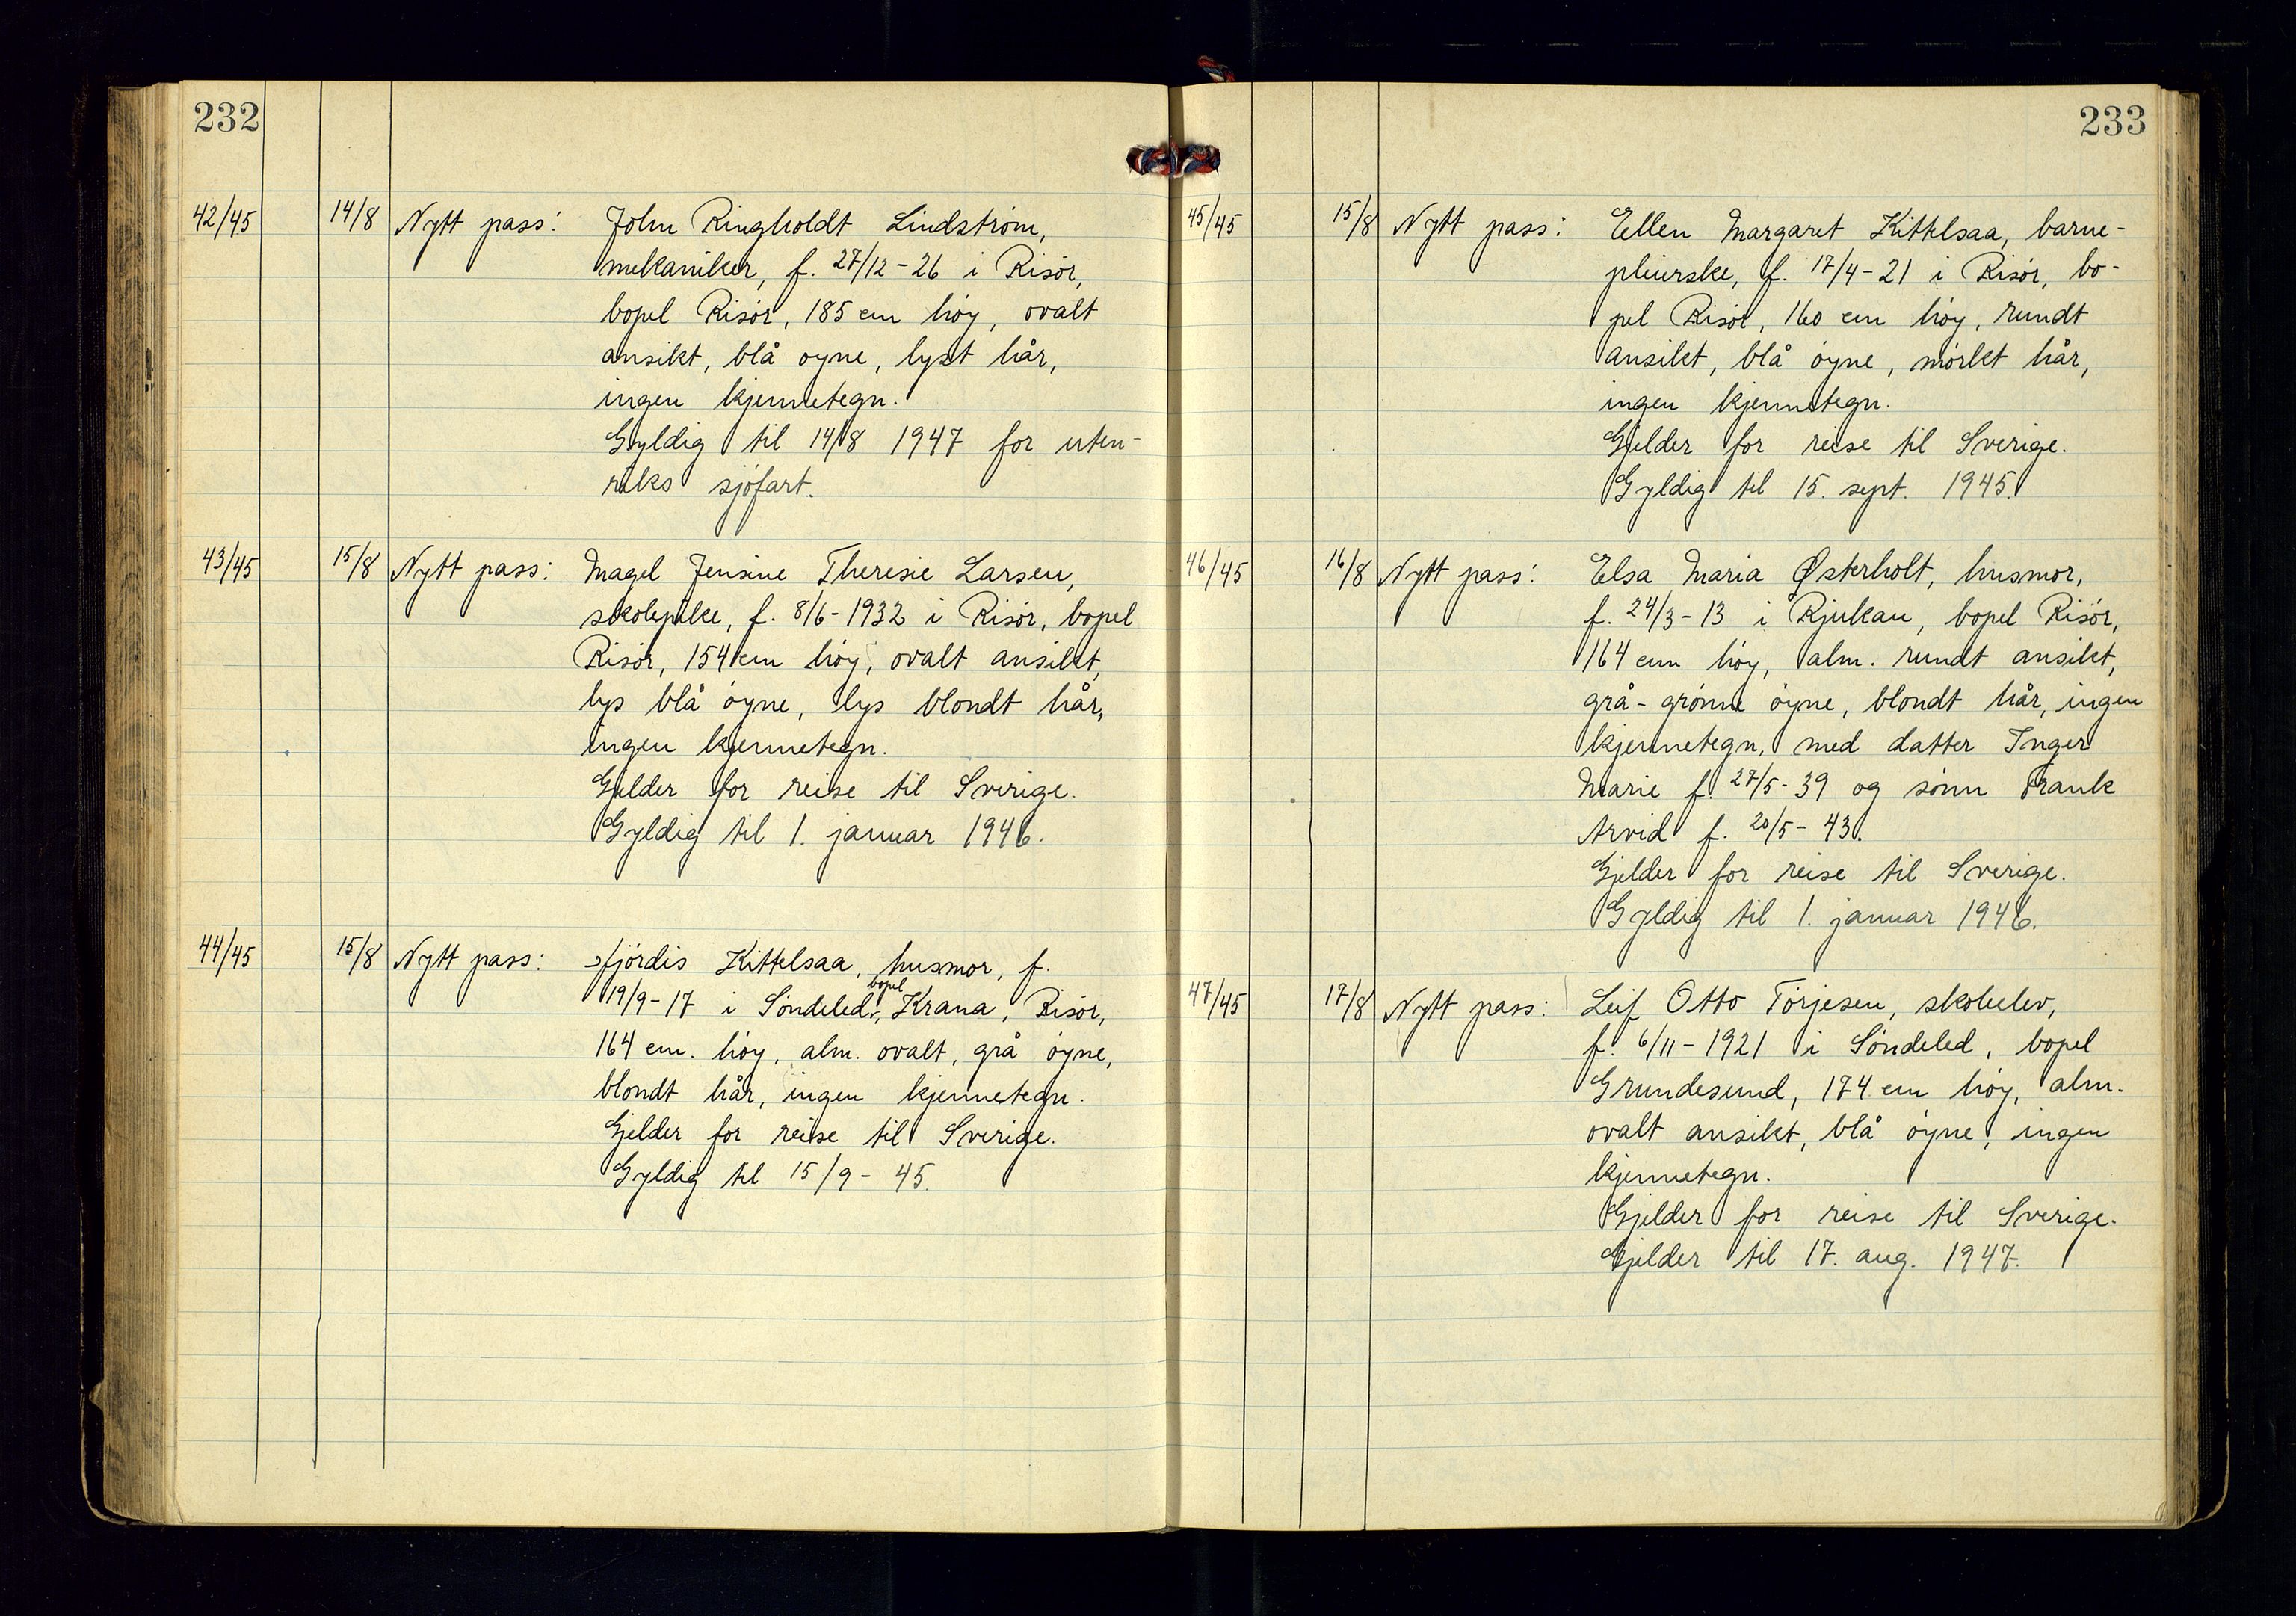 232
42/45 14/8 Nytt pass: John Ringholdt Lindström,
mekaniker, f. 27/12-26 i Risör,
bopel Risör, 185 cm höy, ovalt
ansikt, blå öyne, lyst hår,
ingen kjennetegn.
Gyldig til 14/8 1947 for uten-
riks sjöfart.
43/45 15/8 Nytt pass: Magel Jensine Theresie Larsen,
skolepike, f. 8/6-1932 i Risör, bopel
Risör, 154 cm höy, ovalt ansikt,
lys blå öyne, lys blondt hår,
ingen kjennetegn.
Gjelder for reise til Sverige.
Gyldig til 1. januar 1946.
44/45 15/8 Nytt pass: Hjördis Kittelsaa, husmor, f.
19/9-17 i Söndeled, bopel Krana, Risör,
164 cm. höy, alm. ovalt, grå öyne,
blondt hår, ingen kjennetegn.
Gjelder for reise til Sverige.
Gyldig til 15/9-45.
233
45/45 15/8 Nytt pass: Ellen Margaret Kittelsaa, barne-
pleierske, f. 17/4-21 i Risör, bo-
pel Risör, 160 cm höy, rundt
ansikt, blå öyne, mörkt hår,
ingen kjennetegn.
Gjelder for reise til Sverige.
Gyldig til 15. sept. 1945.
46/45 16/8 Nytt pass: Elsa Maria Østerholt, husmor,
f. 24/3-13 i Rjukan, bopel Risör,
164 cm höy, alm. rundt ansikt,
grå-grönne öyne, blondt hår, ingen
kjennetegn, med datter Inger
Marie f. 27/5-39 og sönn Frank
Arvid f. 20/5-43.
Gjelder for reise til Sverige.
Gyldig til 1. januar 1946.
47/45 17/8 Nytt pass: Leif Otto Törjesen, skoleelev,
f. 6/11-1921 i Söndeled, bopel
Grundesund, 174 cm höy, alm.
ovalt ansikt, blå öyne, ingen
kjennetegn.
Gjelder for reise til Sverige.
Gjelder til 17. aug. 1947.